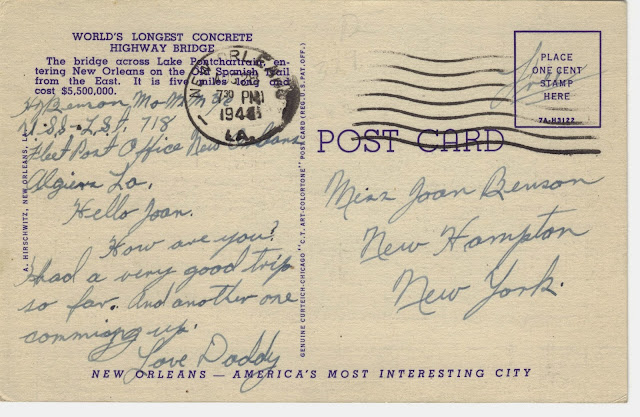 WORLD'S LONGEST CONCRETE
HIGHWAY BRIDGE
The bridge across Lake Pontchartrain, en-
tering New Orleans on the Old Spanish Trail
from the East. It is five miles long and
cost $5,500,000.
Benson MoMM
U.S.S-LST. 718
Fleet Post Office New Orleans
Algiers La.
Hello Joan.
How are you?
I had a very good trip
so far. And another one
comming up.
Love Daddy
A. HIRSCHWITZ, NEW ORLEANS, LA.
NEW ORLEANS
730 PM
1944
LA.
GENUINE CURTEICH-CHICAGO "C.T. ART-COLORTONE" POST CARD (REG. U.S. PAT. OFF.)
POST CARD
Free
PLACE
ONE CENT
STAMP
HERE
7A-H3122
Miss Joan Benson
New Hampton
New York.
NEW ORLEANS — AMERICA'S MOST INTERESTING CITY